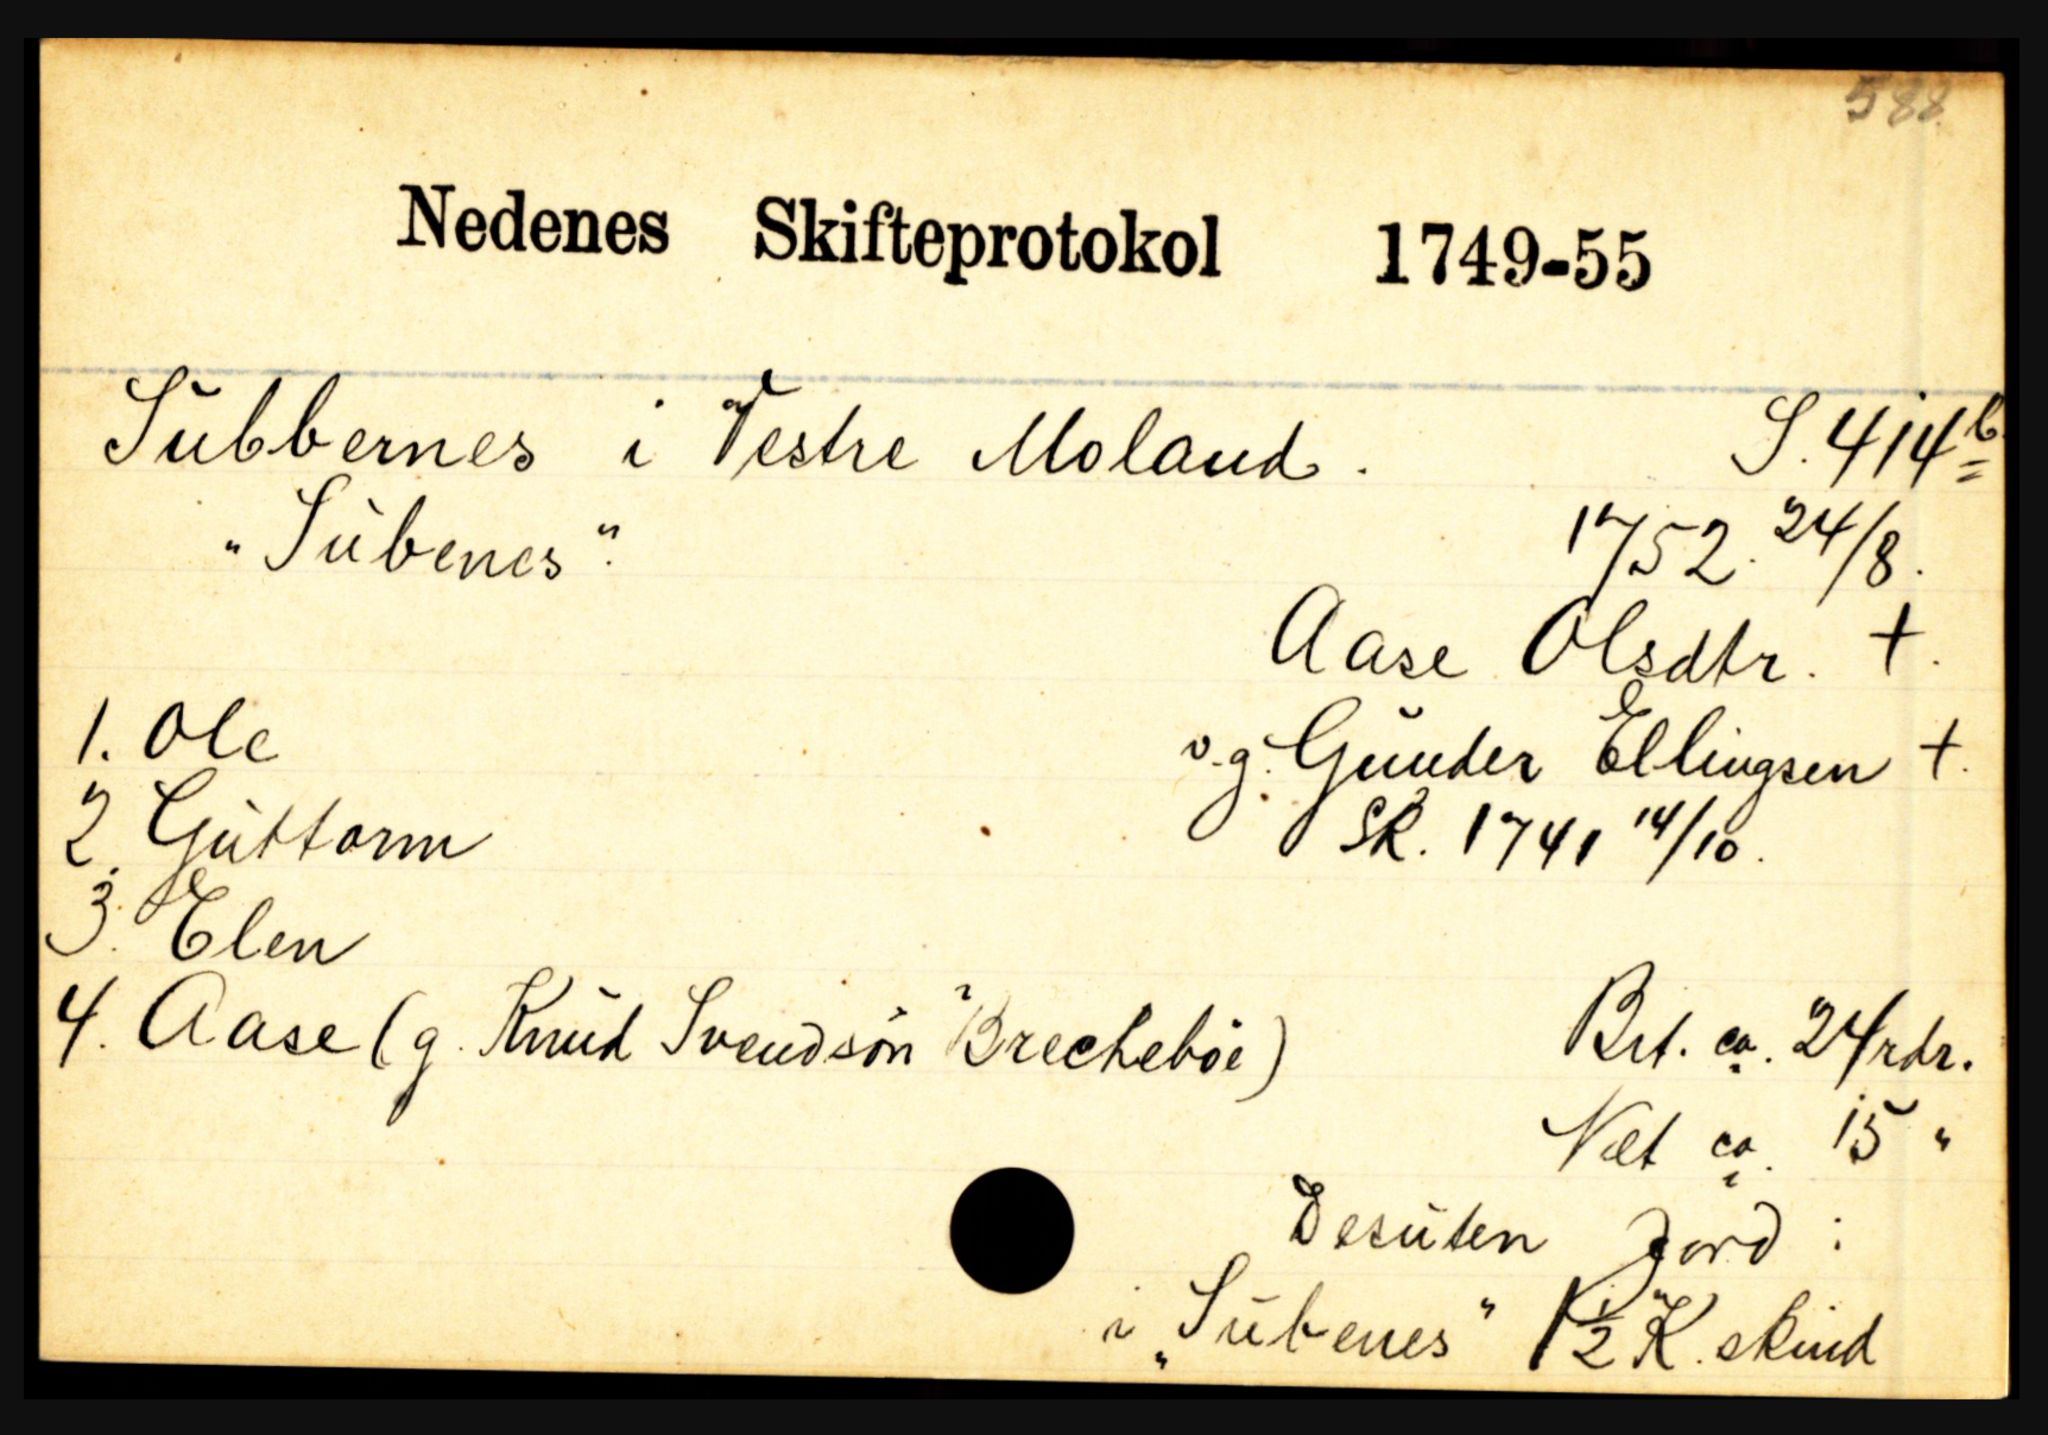 588
Nedenes Skifteprotokol 1749-55
Subbernes i Vestre Moland. S. 414b
"Subenes". 1752. 24/8.
Aase Olsdtr. +.
1. Ole v.g. Gunder Ellingsen +.
2. Guttorm Sk. 1741 14/10.
3. Elen
4. Aase (g. Knud Svendsøn i Brechebøe) Brt. ca. 24 rdr.
Net ca. 15 "
Desuten Jord :
i "Subenes" 1½ K. skind